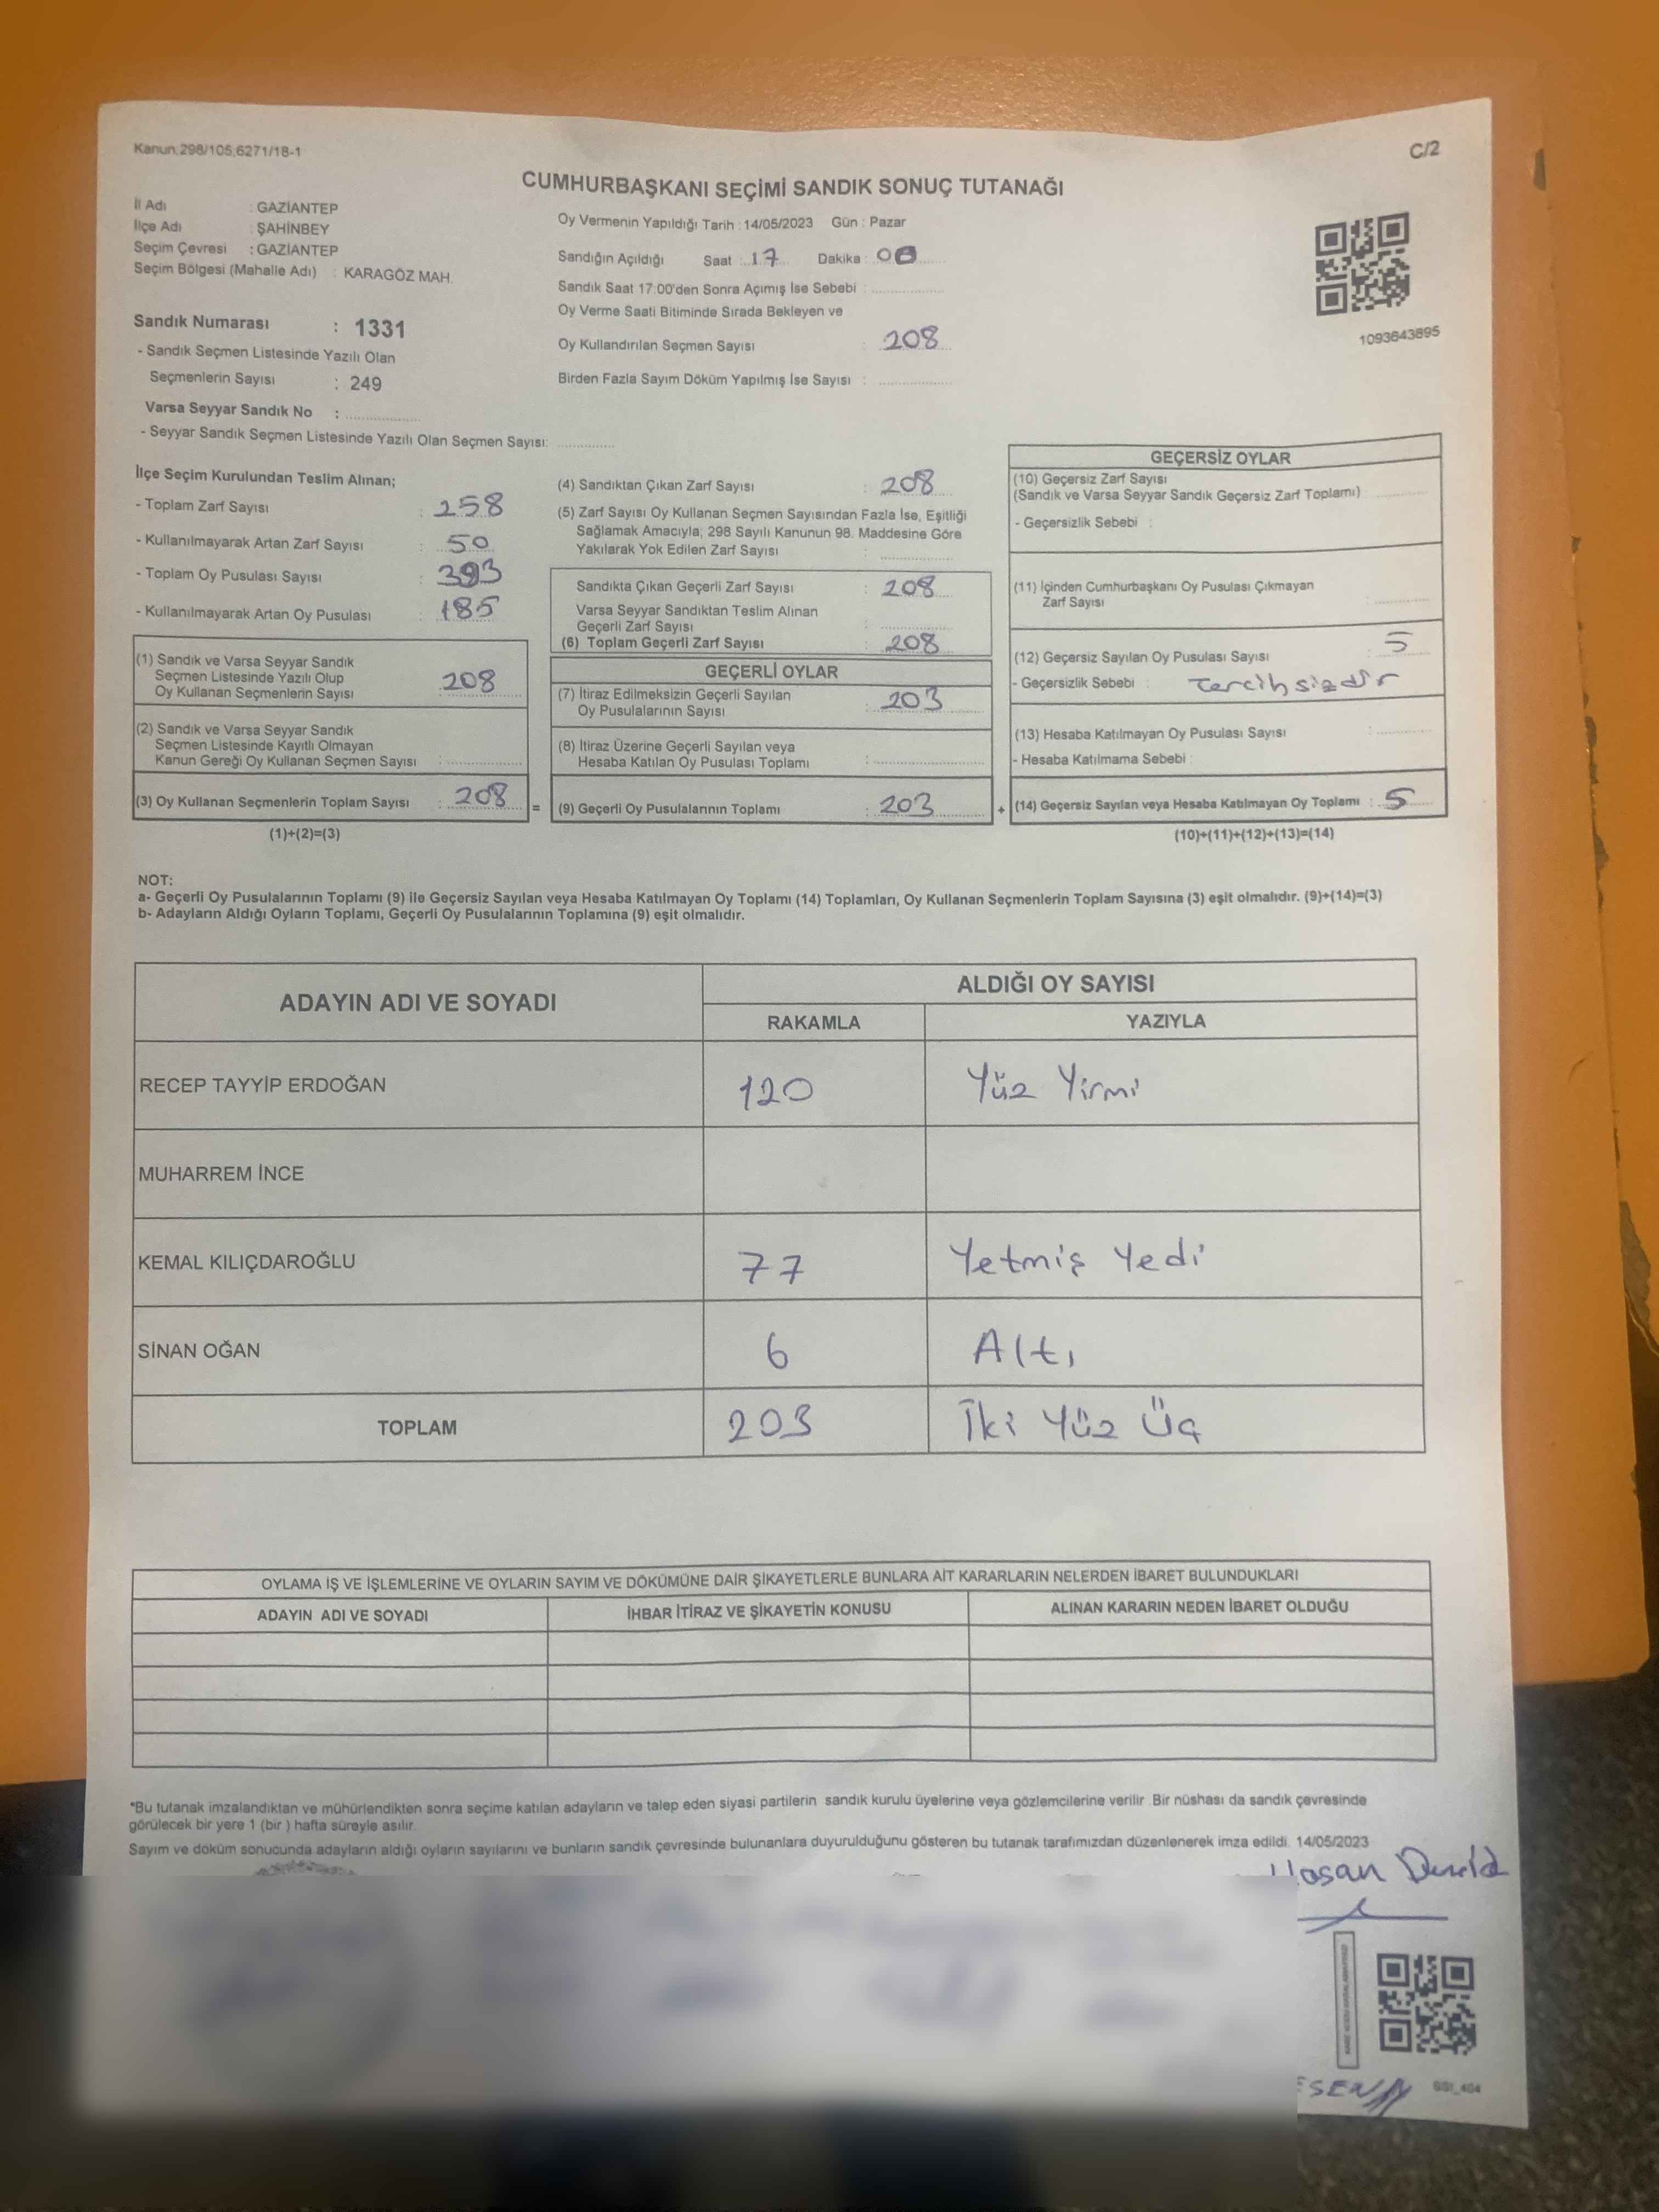 Kanun:298/105;6271/18-1
C/2
CUMHURBAŞKANI SEÇİMİ SANDIK SONUÇ TUTANAĞI
İl Adı : GAZİANTEP
İlçe Adı : ŞAHİNBEY
Seçim Çevresi : GAZİANTEP
Seçim Bölgesi (Mahalle Adı) : KARAGÖZ MAH.
Sandık Numarası : 1331
- Sandık Seçmen Listesinde Yazılı Olan
Seçmenlerin Sayısı : 249
Varsa Seyyar Sandık No :
- Seyyar Sandık Seçmen Listesinde Yazılı Olan Seçmen Sayısı:
Oy Vermenin Yapıldığı Tarih : 14/05/2023 Gün : Pazar
Sandığın Açıldığı Saat : 17 Dakika : 00
Sandık Saat 17:00'den Sonra Açımış İse Sebebi :
Oy Verme Saati Bitiminde Sırada Bekleyen ve
Oy Kullandırılan Seçmen Sayısı : 208
Birden Fazla Sayım Döküm Yapılmış İse Sayısı :
1093643895
İlçe Seçim Kurulundan Teslim Alınan;
- Toplam Zarf Sayısı : 258
- Kullanılmayarak Artan Zarf Sayısı : 50
- Toplam Oy Pusulası Sayısı : 393
- Kullanılmayarak Artan Oy Pusulası : 185
(1) Sandık ve Varsa Seyyar Sandık
Seçmen Listesinde Yazılı Olup
Oy Kullanan Seçmenlerin Sayısı : 208
(2) Sandık ve Varsa Seyyar Sandık
Seçmen Listesinde Kayıtlı Olmayan
Kanun Gereği Oy Kullanan Seçmen Sayısı :
(3) Oy Kullanan Seçmenlerin Toplam Sayısı : 208 =
(1)+(2)=(3)
(4) Sandıktan Çıkan Zarf Sayısı : 208
(5) Zarf Sayısı Oy Kullanan Seçmen Sayısından Fazla İse, Eşitliği
Sağlamak Amacıyla; 298 Sayılı Kanunun 98. Maddesine Göre
Yakılarak Yok Edilen Zarf Sayısı :
Sandıkta Çıkan Geçerli Zarf Sayısı : 208
Varsa Seyyar Sandıktan Teslim Alınan
Geçerli Zarf Sayısı :
(6) Toplam Geçerli Zarf Sayısı : 208
GEÇERLİ OYLAR
(7) İtiraz Edilmeksizin Geçerli Sayılan
Oy Pusulalarının Sayısı : 203
(8) İtiraz Üzerine Geçerli Sayılan veya
Hesaba Katılan Oy Pusulası Toplamı :
(9) Geçerli Oy Pusulalarının Toplamı : 203 +
GEÇERSİZ OYLAR
(10) Geçersiz Zarf Sayısı
(Sandık ve Varsa Seyyar Sandık Geçersiz Zarf Toplamı) :
- Geçersizlik Sebebi :
(11) İçinden Cumhurbaşkanı Oy Pusulası Çıkmayan
Zarf Sayısı :
(12) Geçersiz Sayılan Oy Pusulası Sayısı : 5
- Geçersizlik Sebebi : Tercihsizdir
(13) Hesaba Katılmayan Oy Pusulası Sayısı :
- Hesaba Katılmama Sebebi :
(14) Geçersiz Sayılan veya Hesaba Katılmayan Oy Toplamı : 5
(10)+(11)+(12)+(13)=(14)
NOT:
a- Geçerli Oy Pusulalarının Toplamı (9) ile Geçersiz Sayılan veya Hesaba Katılmayan Oy Toplamı (14) Toplamları, Oy Kullanan Seçmenlerin Toplam Sayısına (3) eşit olmalıdır. (9)+(14)=(3)
b- Adayların Aldığı Oyların Toplamı, Geçerli Oy Pusulalarının Toplamına (9) eşit olmalıdır.
ADAYIN ADI VE SOYADI ALDIĞI OY SAYISI
RAKAMLA YAZIYLA
RECEP TAYYİP ERDOĞAN 120 Yüz Yirmi
MUHARREM İNCE
KEMAL KILIÇDAROĞLU 77 Yetmiş Yedi
SİNAN OĞAN 6 Altı
TOPLAM 203 İki Yüz Üç
OYLAMA İŞ VE İŞLEMLERİNE VE OYLARIN SAYIM VE DÖKÜMÜNE DAİR ŞİKAYETLERLE BUNLARA AİT KARARLARIN NELERDEN İBARET BULUNDUKLARI
ADAYIN ADI VE SOYADI İHBAR İTİRAZ VE ŞİKAYETİN KONUSU ALINAN KARARIN NEDEN İBARET OLDUĞU
*Bu tutanak imzalandıktan ve mühürlendikten sonra seçime katılan adayların ve talep eden siyasi partilerin sandık kurulu üyelerine veya gözlemcilerine verilir. Bir nüshası da sandık çevresinde
görülecek bir yere 1 (bir ) hafta süreyle asılır.
Sayım ve döküm sonucunda adayların aldığı oyların sayılarını ve bunların sandık çevresinde bulunanlara duyurulduğunu gösteren bu tutanak tarafımızdan düzenlenerek imza edildi. 14/05/2023
Hasan
ESEN